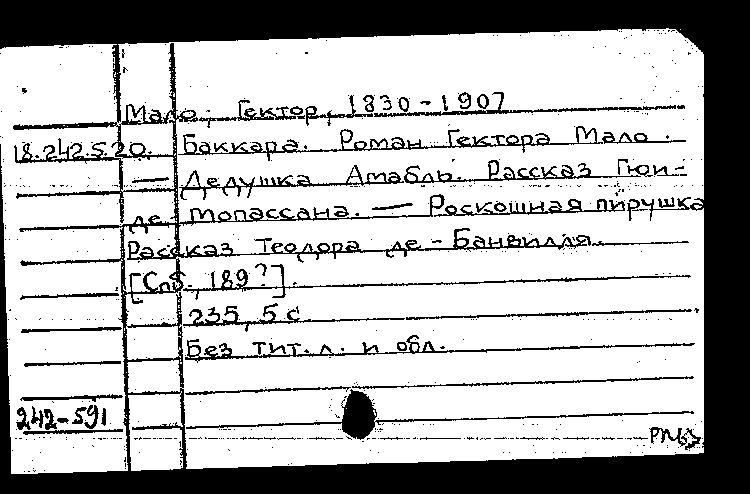 Мало, Гектор, 1830-1907
18.242.5.20. Баккара. Роман Гектора Мало.
— Дедушка Амабль. Рассказ Гюи-
де-Мопассана. — Роскошная пирушка
Рассказ Теодора де-Банвилля.
[Спб., 189?].
235, 5 с.
Без тит. л. и обл.
242-591